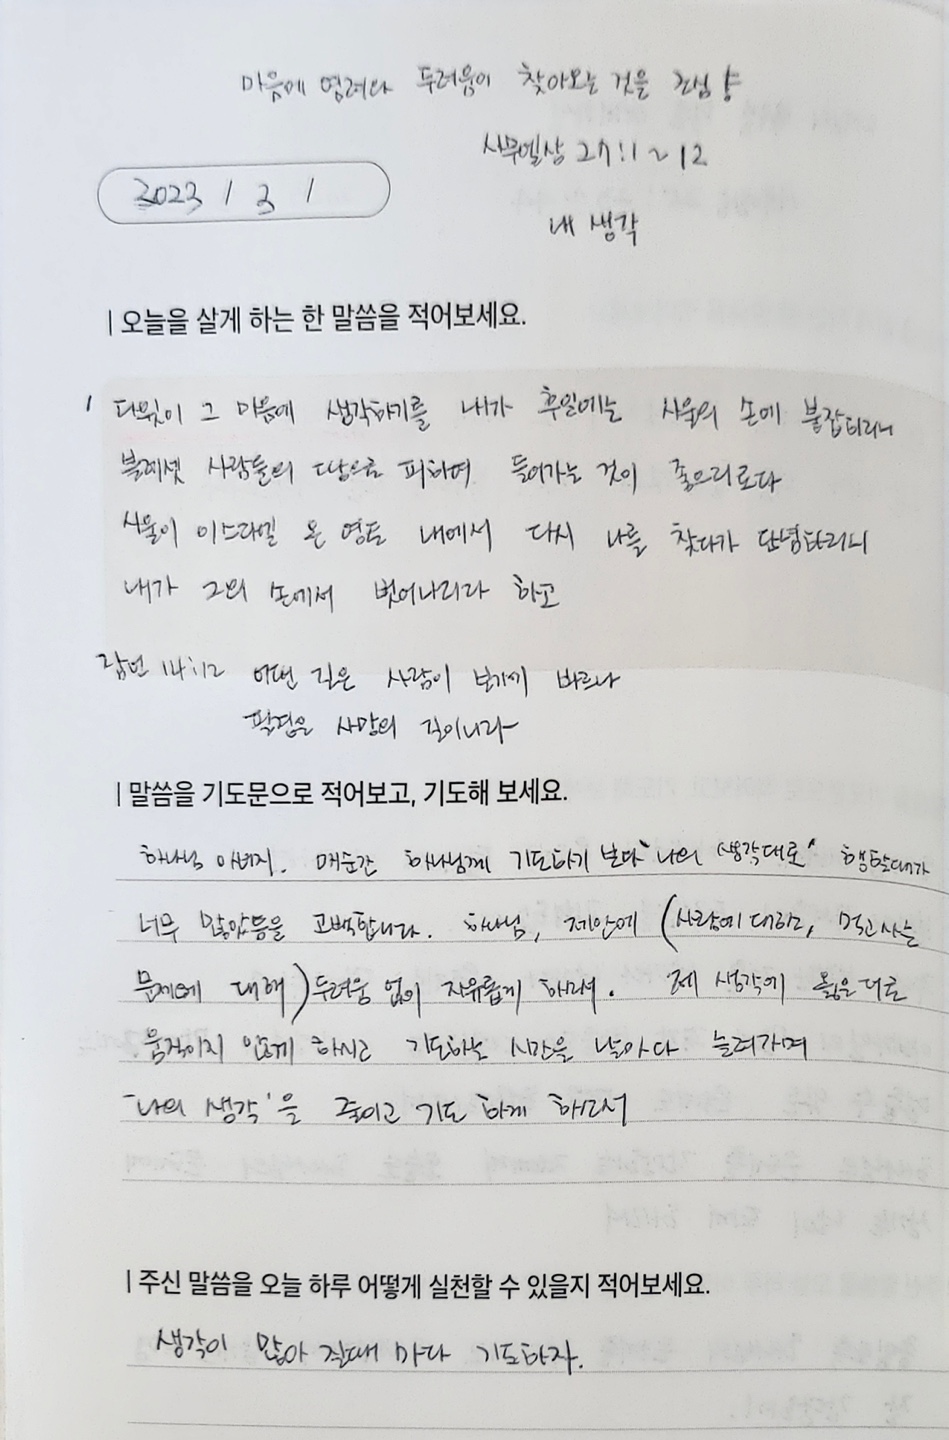 마음에 염려와 두려움이 찾아오는 것을 조심
사무엘상 27:1~12
2023 / 3 / 1
내 생각
| 오늘을 살게 하는 한 말씀을 적어보세요.
1 다윗이 그 마음에 생각하기를 내가 후일에는 사울의 손에 붙잡히리니
블레셋 사람들의 땅으로 피하여 들어가는 것이 좋으리로다
사울이 이스라엘 온 영토 내에서 다시 나를 찾다가 단념하리니
내가 그의 손에서 벗어나리라 하고
잠언 14:12 어떤 길은 사람이 보기에 바르나
필경은 사망의 길이니라
| 말씀을 기도문으로 적어보고, 기도해 보세요.
하나님 아버지. 매순간 하나님께 기도하기 보다 "나의 생각대로" 행할때가
너무 많았음을 고백합니다. 하나님, 제안에 (사람에 대한, 먹고사는
문제에 대해) 두려움 없이 자유롭게 하여서. 제 생각에 옳은대로
움직이지 않게 하시고 기도하는 시간을 날마다 늘려가며
'나의 생각'을 줄이고 기도 하게 하소서
| 주신 말씀을 오늘 하루 어떻게 실천할 수 있을지 적어보세요.
생각이 많아 질때 마다 기도하자.